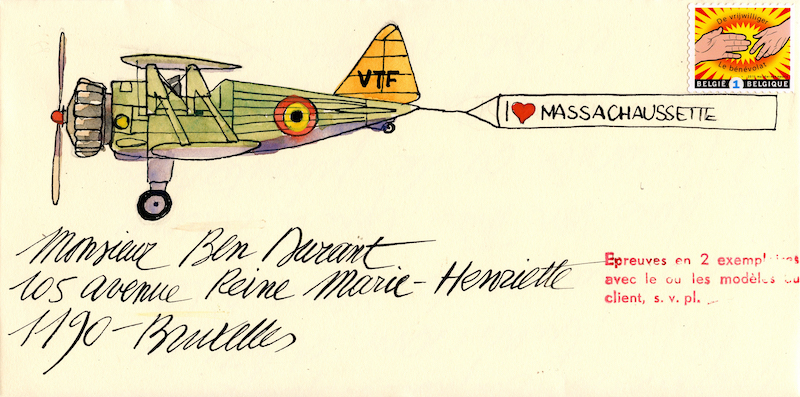 De vrijwilliger
Le bénévolat
BELGIË 1 BELGIQUE
VTF
I ❤ MASSACHAUSSETTE
Monsieur Ben Durant
105 avenue Reine Marie-Henriette
1190-Bruxelles
Epreuves en 2 exemplaires
avec le ou les modèles du
client, s. v. pl.